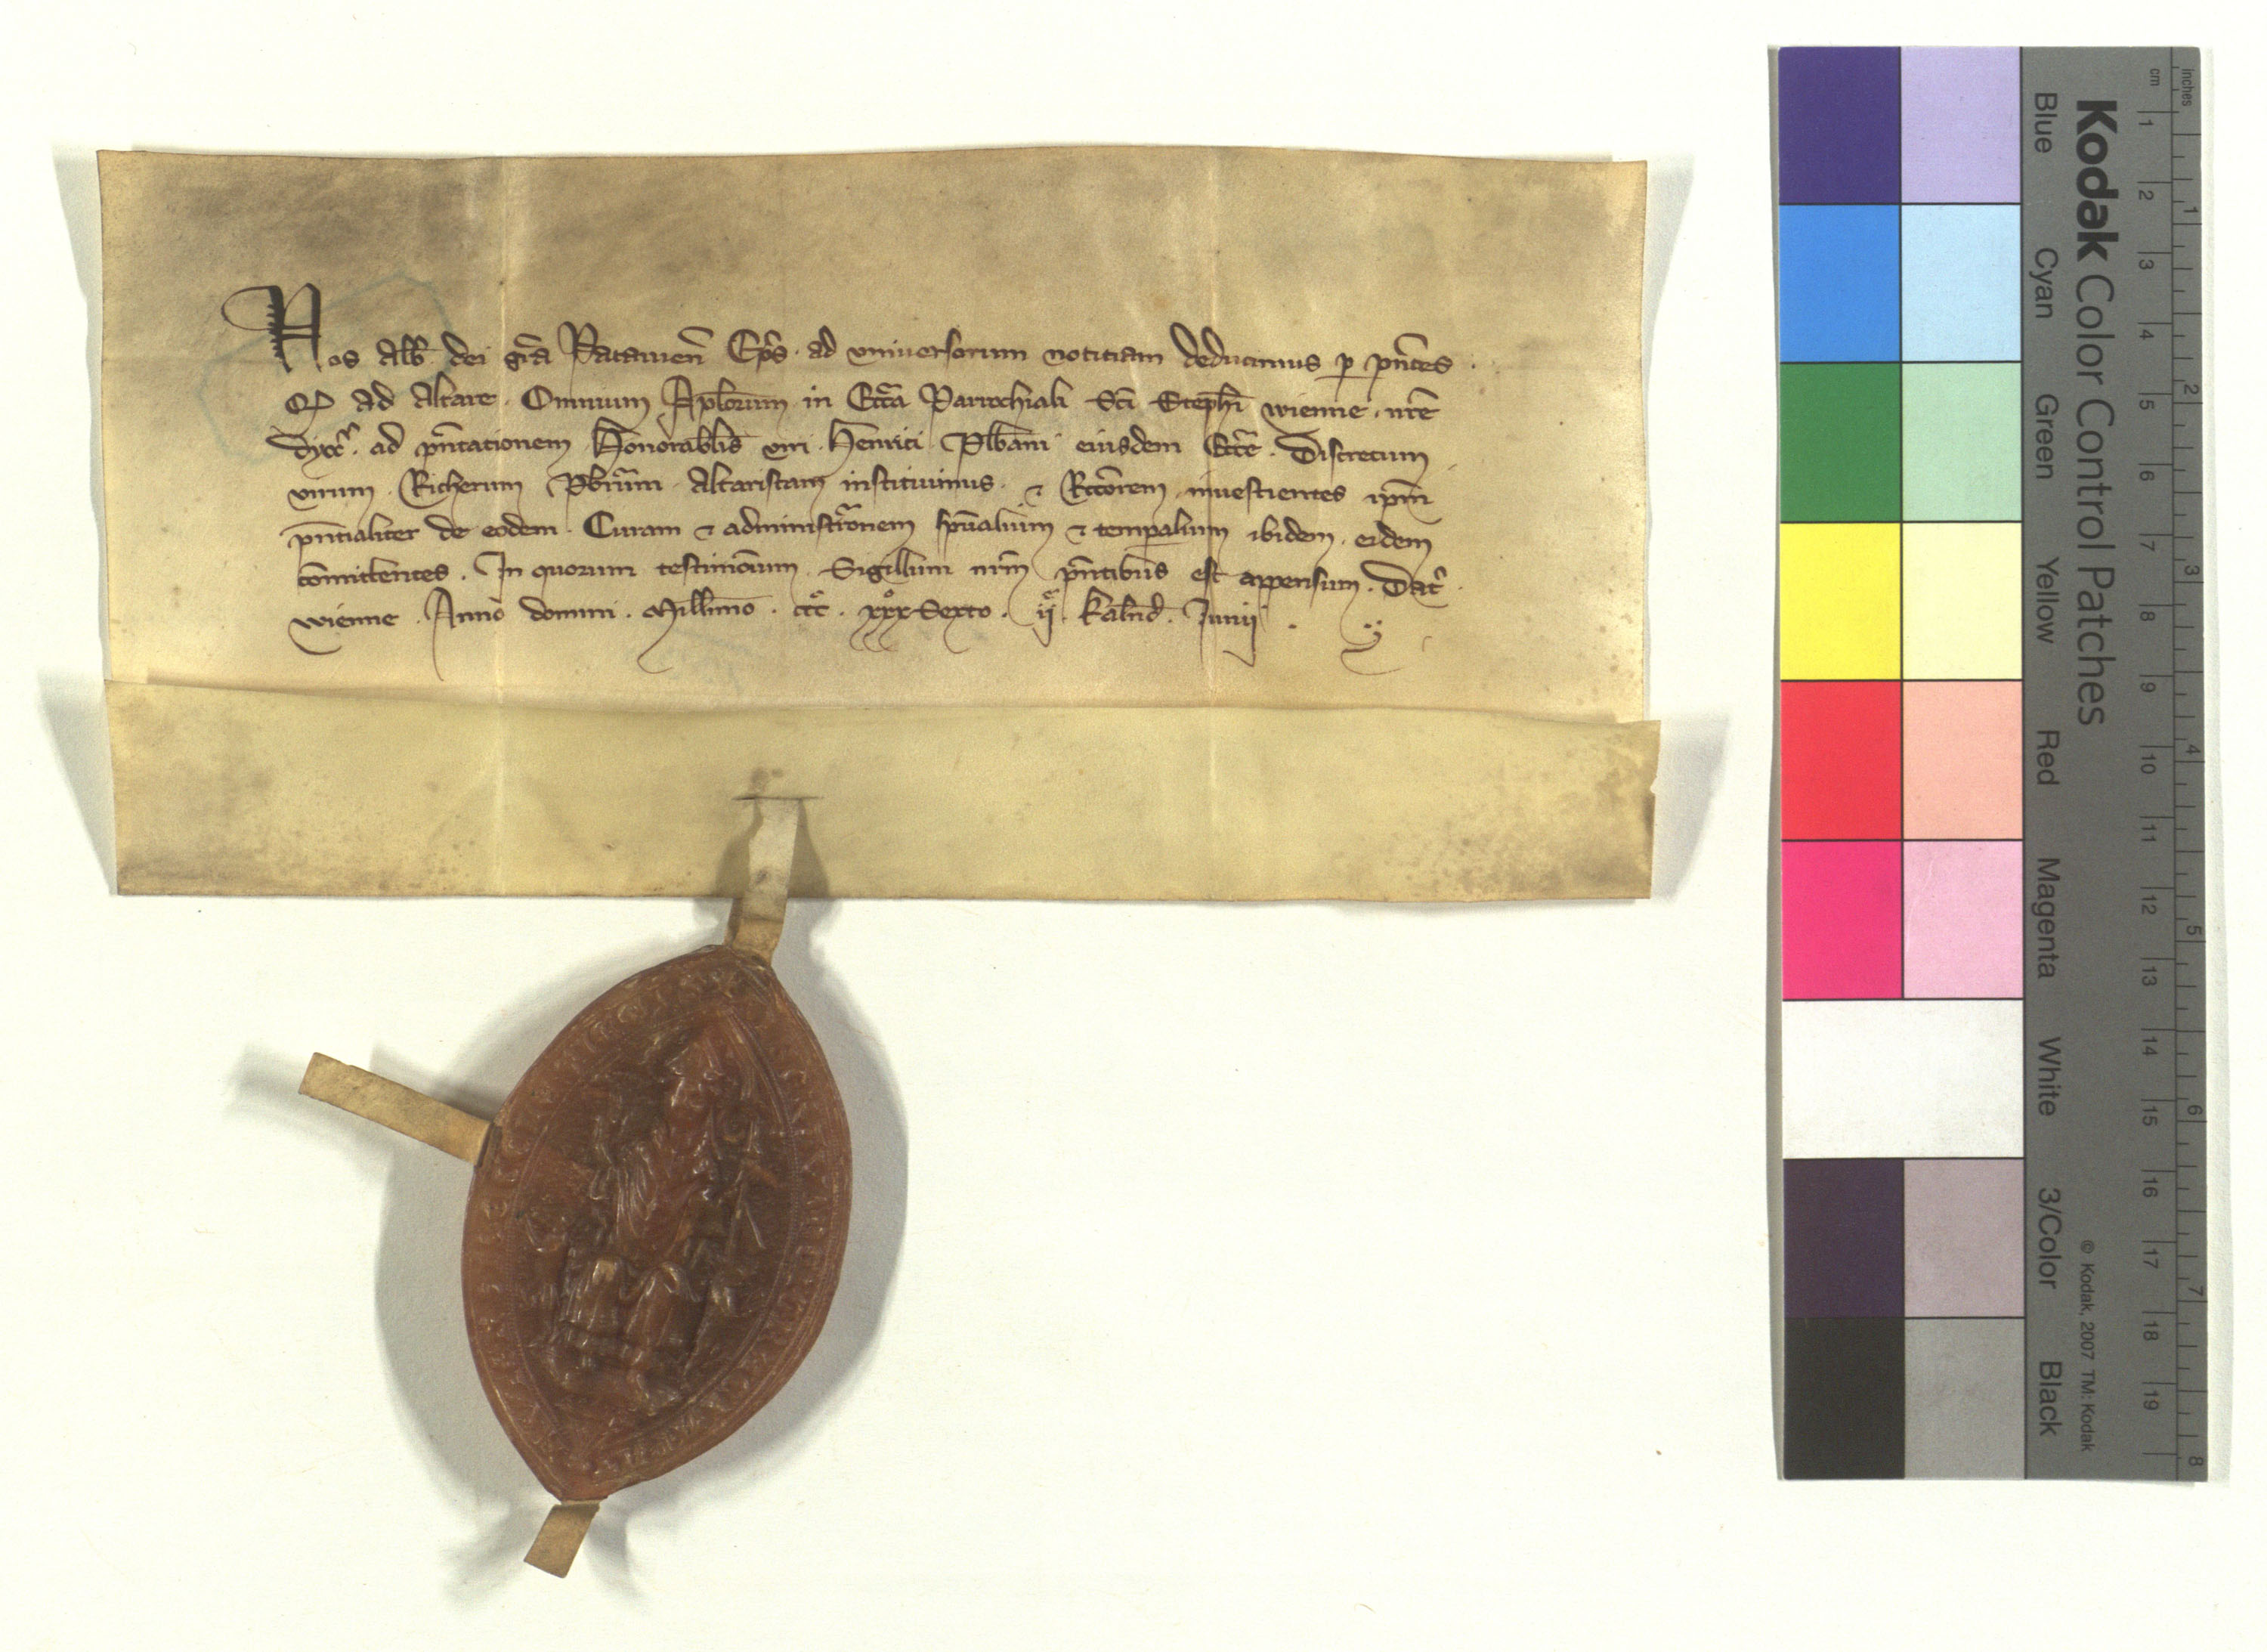 Nos Alb̄ dei gr̄a Patauien̄ Ep̄s · ad vniuersorum notitiam deducimus p p̄ntes ·
Q ad Altare · Omnium Ap̄lorum in Eccl̄a Parrochiali Sc̄i Steph̄i wienne · nr̄e
dyoc̄ · ad p̄ntationem Honorabil̄ viri · Henrici · Pleb̄ani eiusdem Eccl̄e · Discretum
virum · Richerum Pbr̄um · Altaristam instituimus · ⁊ Rc̄orem · inuestientes ip̄m
p̄ntialiter de eodem · Curam ⁊ administr̄onem sp̄ualium ⁊ temporalium ibidem · eidem
com̄ittentes · In quorum testimōium · Sigillum nr̄m p̄ntibus est appensum · Dat̄ ·
wienne · Anno domini · Mill̄imo · ccc̊ · xxx̊ Sexto · ij · kaln̄d · Junij ·
Kodak Color Control Patches
© Kodak, 2007 TM: Kodak
Blue Cyan Green Yellow Red Magenta White 3/Color Black
cm 1 2 3 4 5 6 7 8 9 10 11 12 13 14 15 16 17 18 19
inches 1 2 3 4 5 6 7 8